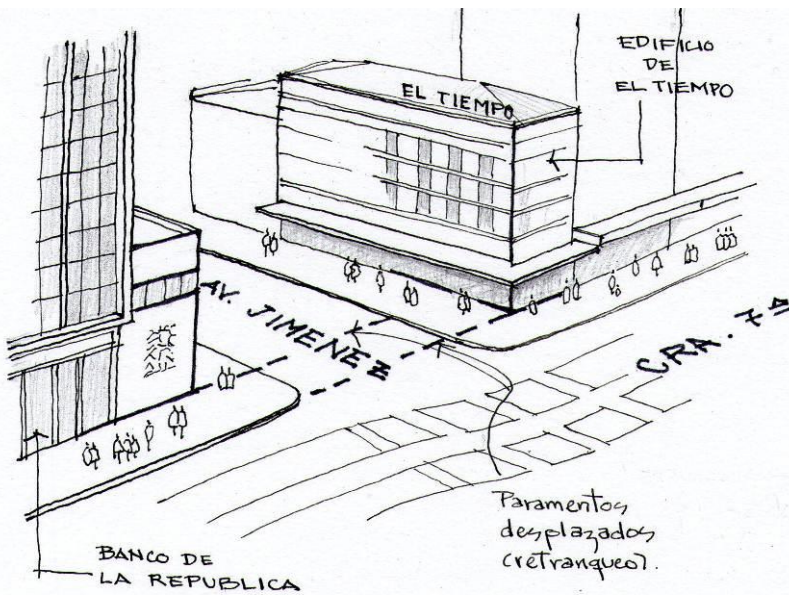 EDIFICIO
DE
EL TIEMPO
EL TIEMPO
AV. JIMENEZ
CRA. 7ª
Paramentos
desplazados
(retranqueo).
BANCO DE
LA REPUBLICA